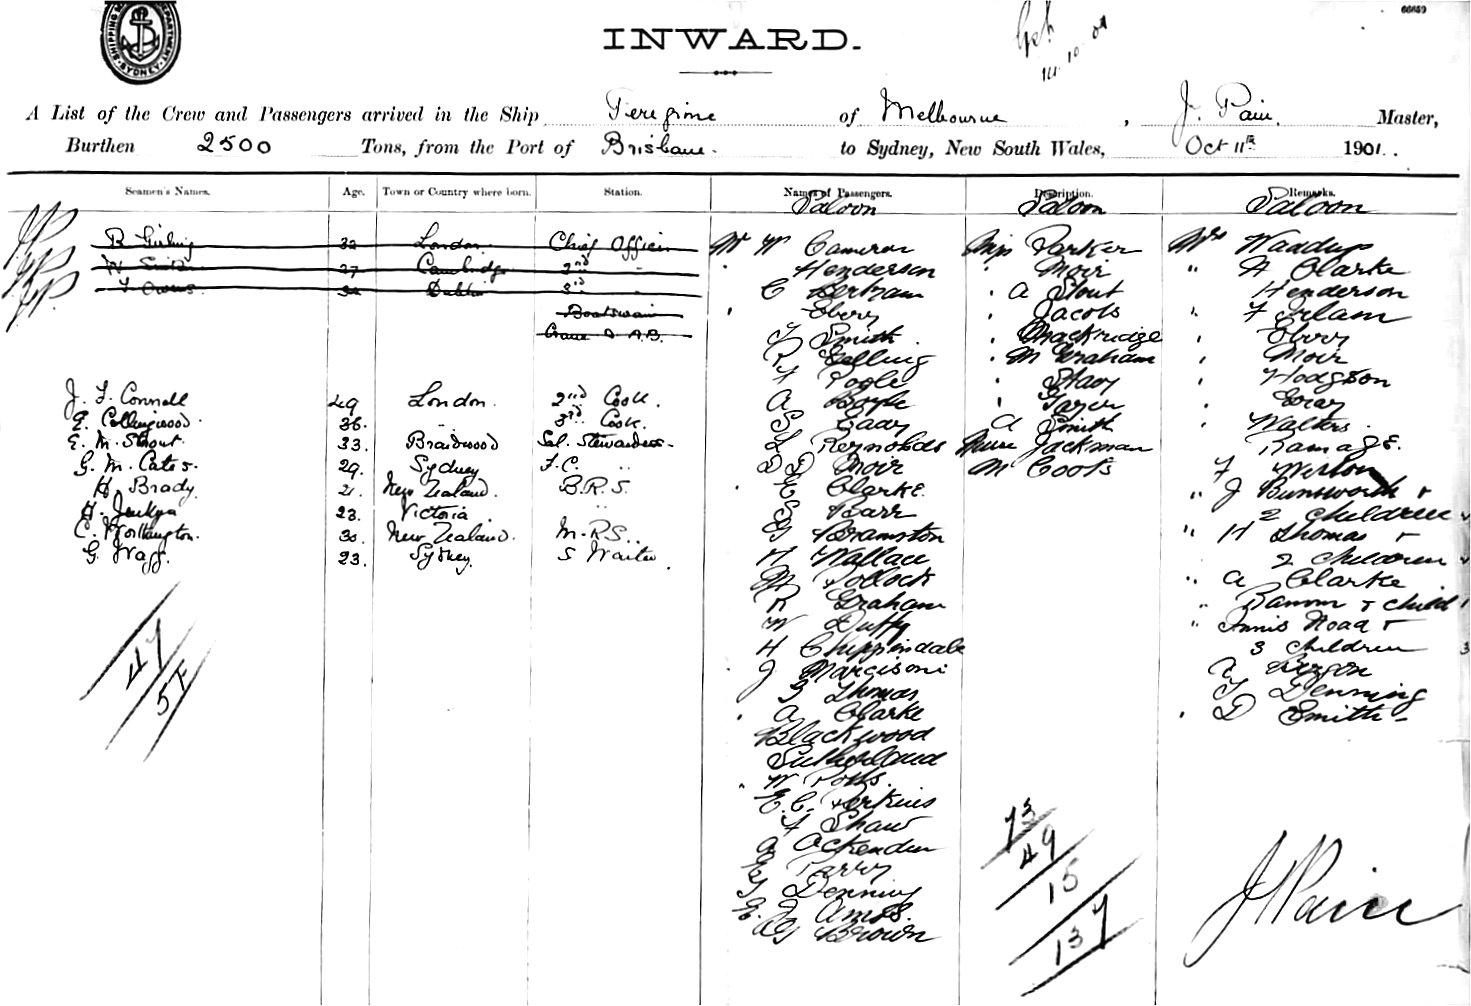 66659
INWARD.
14.10.01
A List of the Crew and Passengers arrived in the Ship Peregrine of Melbourne, J. Pain, Master,
Burthen 2500 Tons, from the Port of Brisbane. to Sydney, New South Wales, Oct 11th 1901.
Seamen's Names. Age. Town or Country where born. Station. Names of Passengers. Description. Remarks.
Saloon Saloon Saloon
B Girling 32 London Chief Officer
27 Cambridge 2nd "
T Owens. Dublin 3rd "
Boatswain
A.B.
J. F. Connell 49 London. 2nd Cook.
E. Collingwood. 36. " 3rd Cook.
E. M. Strout 33. Braidwood Sal. Stewardess
G. M. Cates. 29. Sydney F.C. "
H. Brady 21. New Zealand. B.R.S.
H. 23. Victoria "
C. Worthington. 30. New Zealand. M.R.S.
G. Wagg. 23. Sydney. S Waiter
47
51
Mr W Cameron
" Henderson
C Bertram
" Ebery
F Smith
R Gelling
F Pogle
A Boyle
S Eady
L Reynolds
D D Moir
" E Clarke.
S Barr
G Bramston
H Wallace
W Pollock
R Graham
W Duffy
H Chippindale
J Marcisoni
G Thomas
" A Clarke
Blackwood
Sutherland
" W Potts.
E. C. Perkins
A Shaw
A Ockenden
E Parry
T Denning
E. J. Amos.
G Brown
Miss Parker
" Moir
" A Stout
" Jacobs
" Mackridge
" M Graham
" Stacy
"
" A Smith
Nurse Jackman
M Coots
73
49
15
137
Mrs Waddups
" A Clarke
Henderson
" F Irlam
" Ebery
" Moir
" Hodgson
" Gray
" Walters.
Ramage.
F Weston
" J Bunsworth &
2 children
" H Thomas &
2 children
" A Clarke
" & child 1
" Innis Noad &
3 children 3
A
T Denning
" D Smith
J Pain